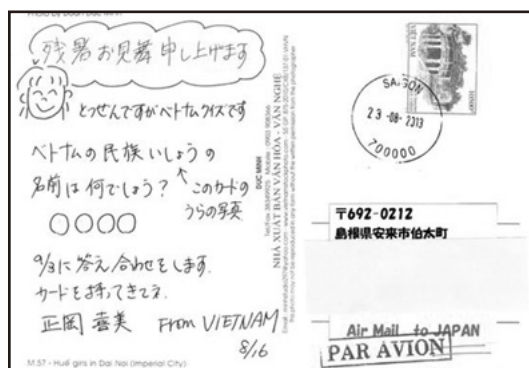 Photo by Doan Duc Minh
残暑お見舞申し上げます
とつぜんですがベトナムクイズです
ベトナムの民族いしょうの
名前は何でしょう?
↑このカードの
うらの写真
○○○○
9/3に答え合わせをします.
カードを持ってきてネ
正岡 喜美 From VIETNAM
8/16
M.57 - Huế girls in Dai Noi (Imperial City)
ĐUC MINH
NHÀ XUẤT BẢN VĂN HÓA - VĂN NGHỆ
VIỆT NAM
SAIGON
23-08-2013
700000
〒692-0212
島根県安来市伯太町
Air Mail to JAPAN
PAR AVION